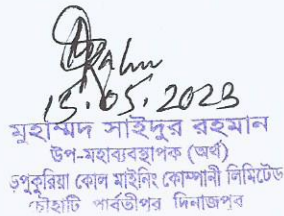 Rahm
15.05.2023
মুহাম্মদ সাইদুর রহমান
উপ-মহাব্যবস্থাপক (অর্থ)
ড়পুকুরিয়া কোল মাইনিং কোম্পানী লিমিটেড
চৌহাটি পার্বতীপুর দিনাজপুর